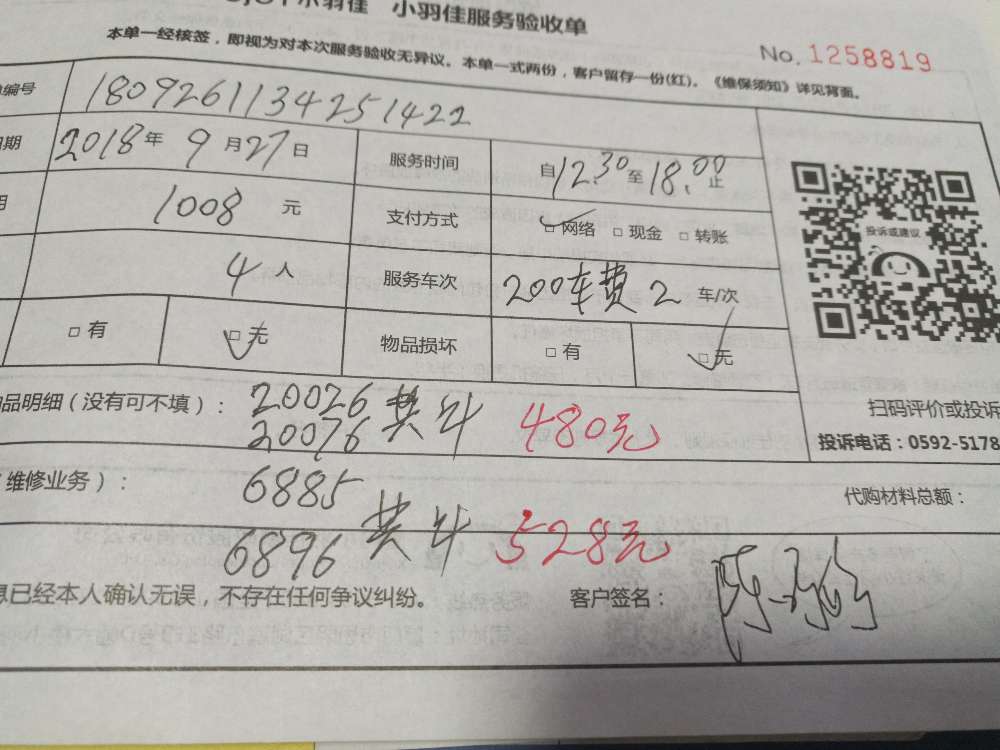 小羽佳 小羽佳服务验收单
本单一经核签，即视为对本次服务验收无异议。本单一式两份，客户留存一份(红)。《维保须知》详见背面。
No. 1258819
编号 1809261134251422
期 2018年 9月27日 服务时间 自12.30至18.00止
1008 元 支付方式 □网络 □现金 □转账
4人 服务车次 200车费2 车/次
□有 □无 物品损坏 □有 □无
投诉或建议
扫码评价或投诉
投诉电话：0592-5178
品明细（没有可不填）： 20026 共计 480元
20076
维修业务）： 6885 共计 528元
6896
代购材料总额：
息已经本人确认无误，不存在任何争议纠纷。 客户签名：